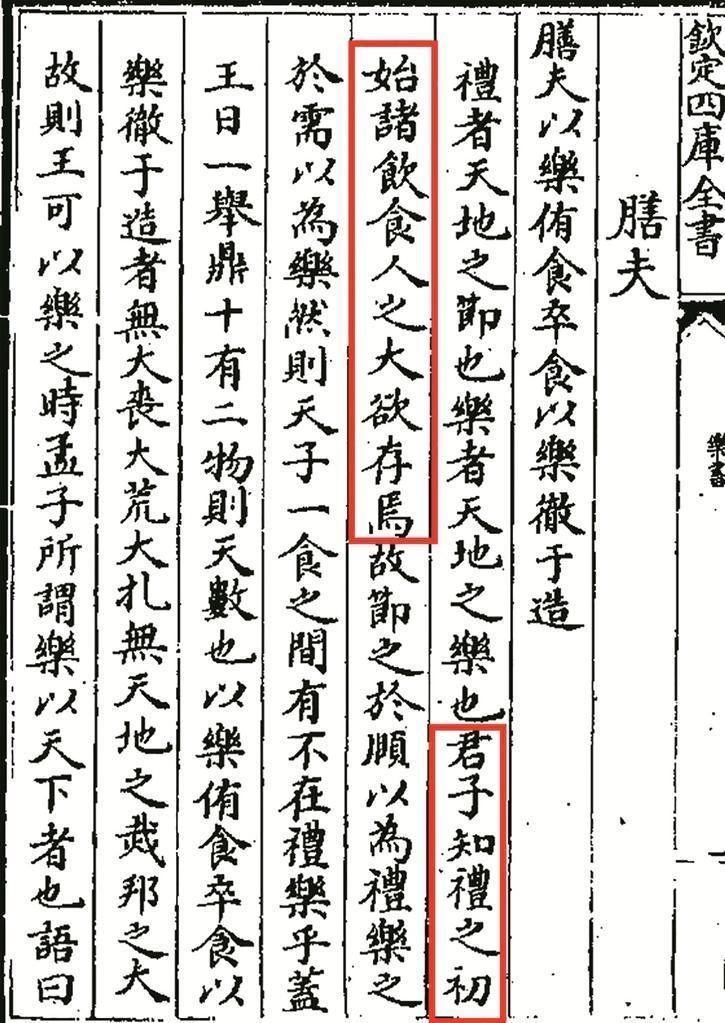 欽定四庫全書
樂書
膳夫
膳夫以樂侑食卒食以樂徹于造
禮者天地之節也樂者天地之樂也君子知禮之初
始諸飲食人之大欲存焉故節之於頤以為禮樂之
於需以為樂然則天子一食之間有不在禮樂乎蓋
王日一舉鼎十有二物則天數也以樂侑食卒食以
樂徹于造者無大喪大荒大扎無天地之烖邦之大
故則王可以樂之時孟子所謂樂以天下者也語曰